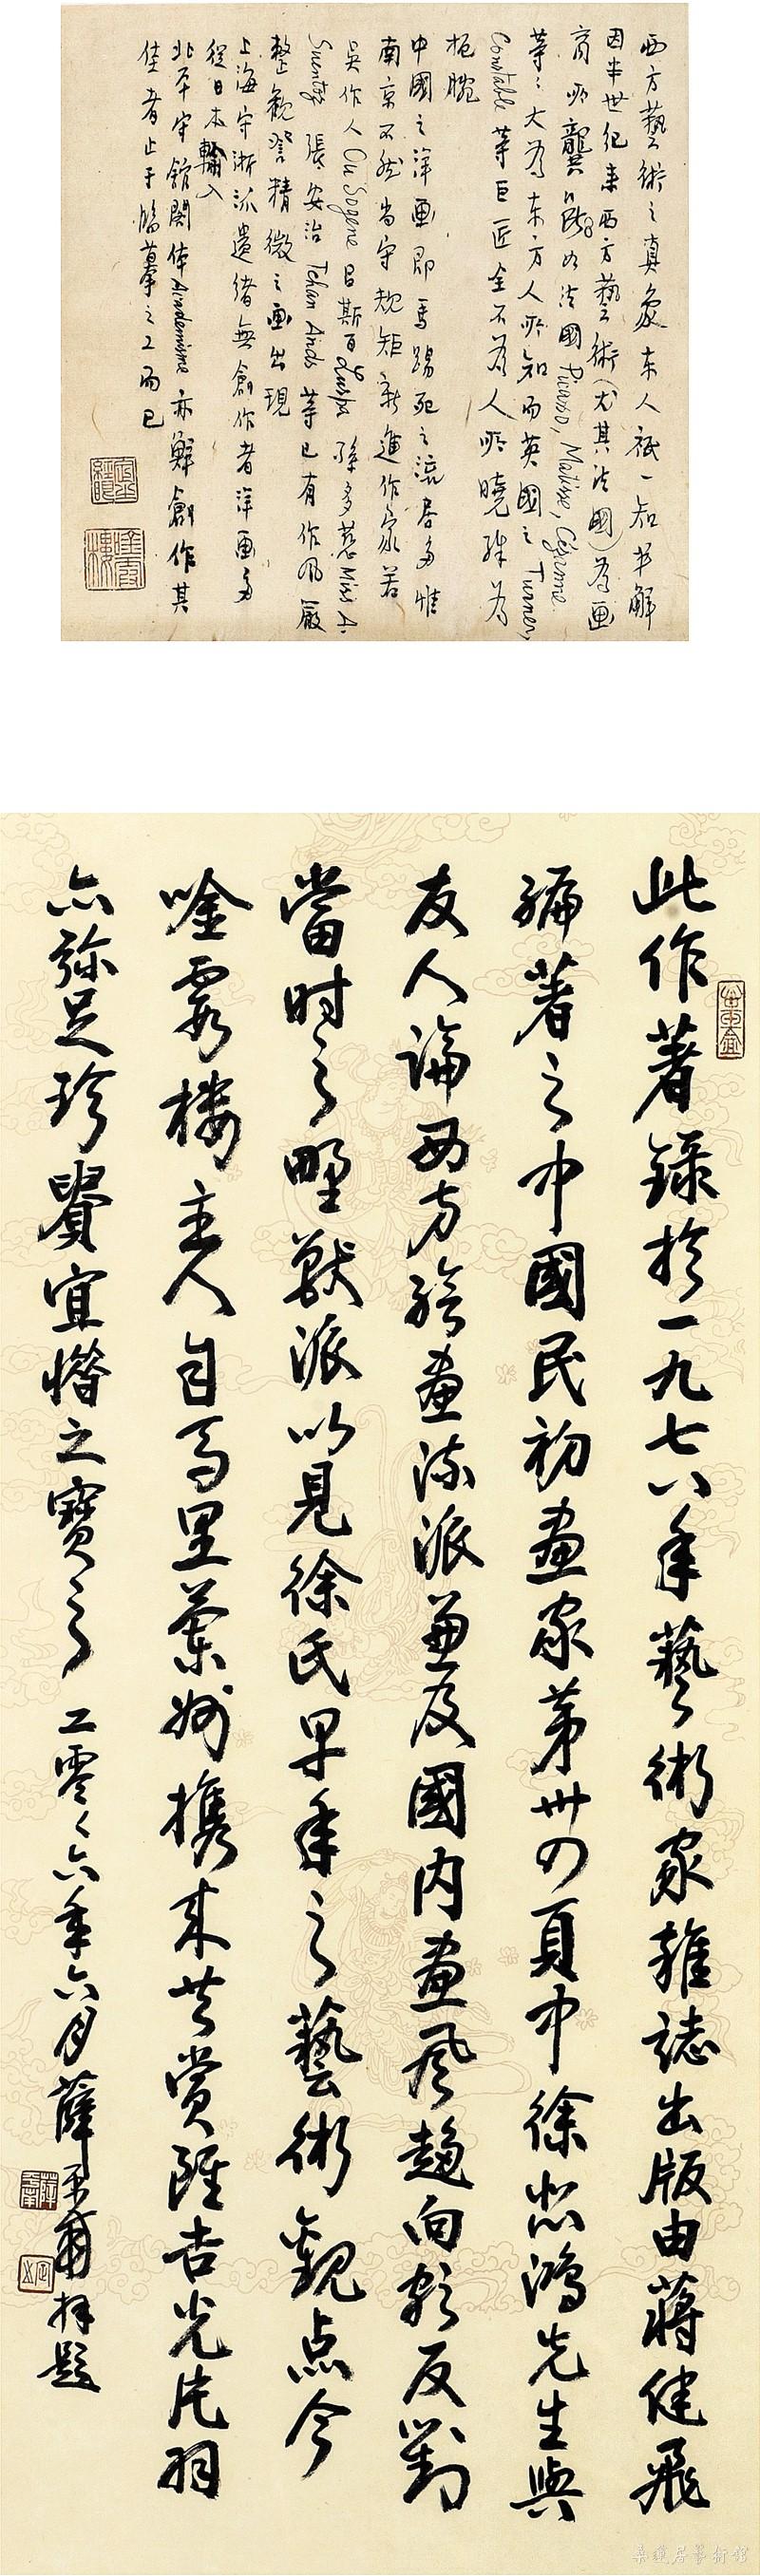 西方藝術之真象東人祇一知半解
因半世紀來西方藝術(尤其法國)為畫
商所龔斷如法國Picasso, Matisse, Cézanne
等等大為東方人所知而英國之Turner,
Constable等巨匠全不為人所曉殊為
扼腕
中國之洋畫即馬踢死之流居多惟
南京不然尚守規矩新進作家若
吳作人Ou Sogene呂斯百Lusipé孫多慈Miss A.
Suentze張安治Tchan Anch等已有作風嚴
整觀察精微之画出現
上海守浙派遺緒無創作者洋画多
從日本輸入
北平守館閣体Academisme亦鮮創作其
佳者止于臨摹之工而已
此作著錄於一九七八年藝術家雜誌出版由蔣健飛
編著之中國民初畫家第卅四頁中徐悲鴻先生與
友人論西方繪畫流派兼及國內畫風趨向頗反對
當時之野獸派以見徐氏早年之藝術觀点今
唫霞樓主人自馬里蘭州攜來共賞雖吉光片羽
亦彌足珍貴宜懵之寶之 二零零六年六月薛平甫拜題